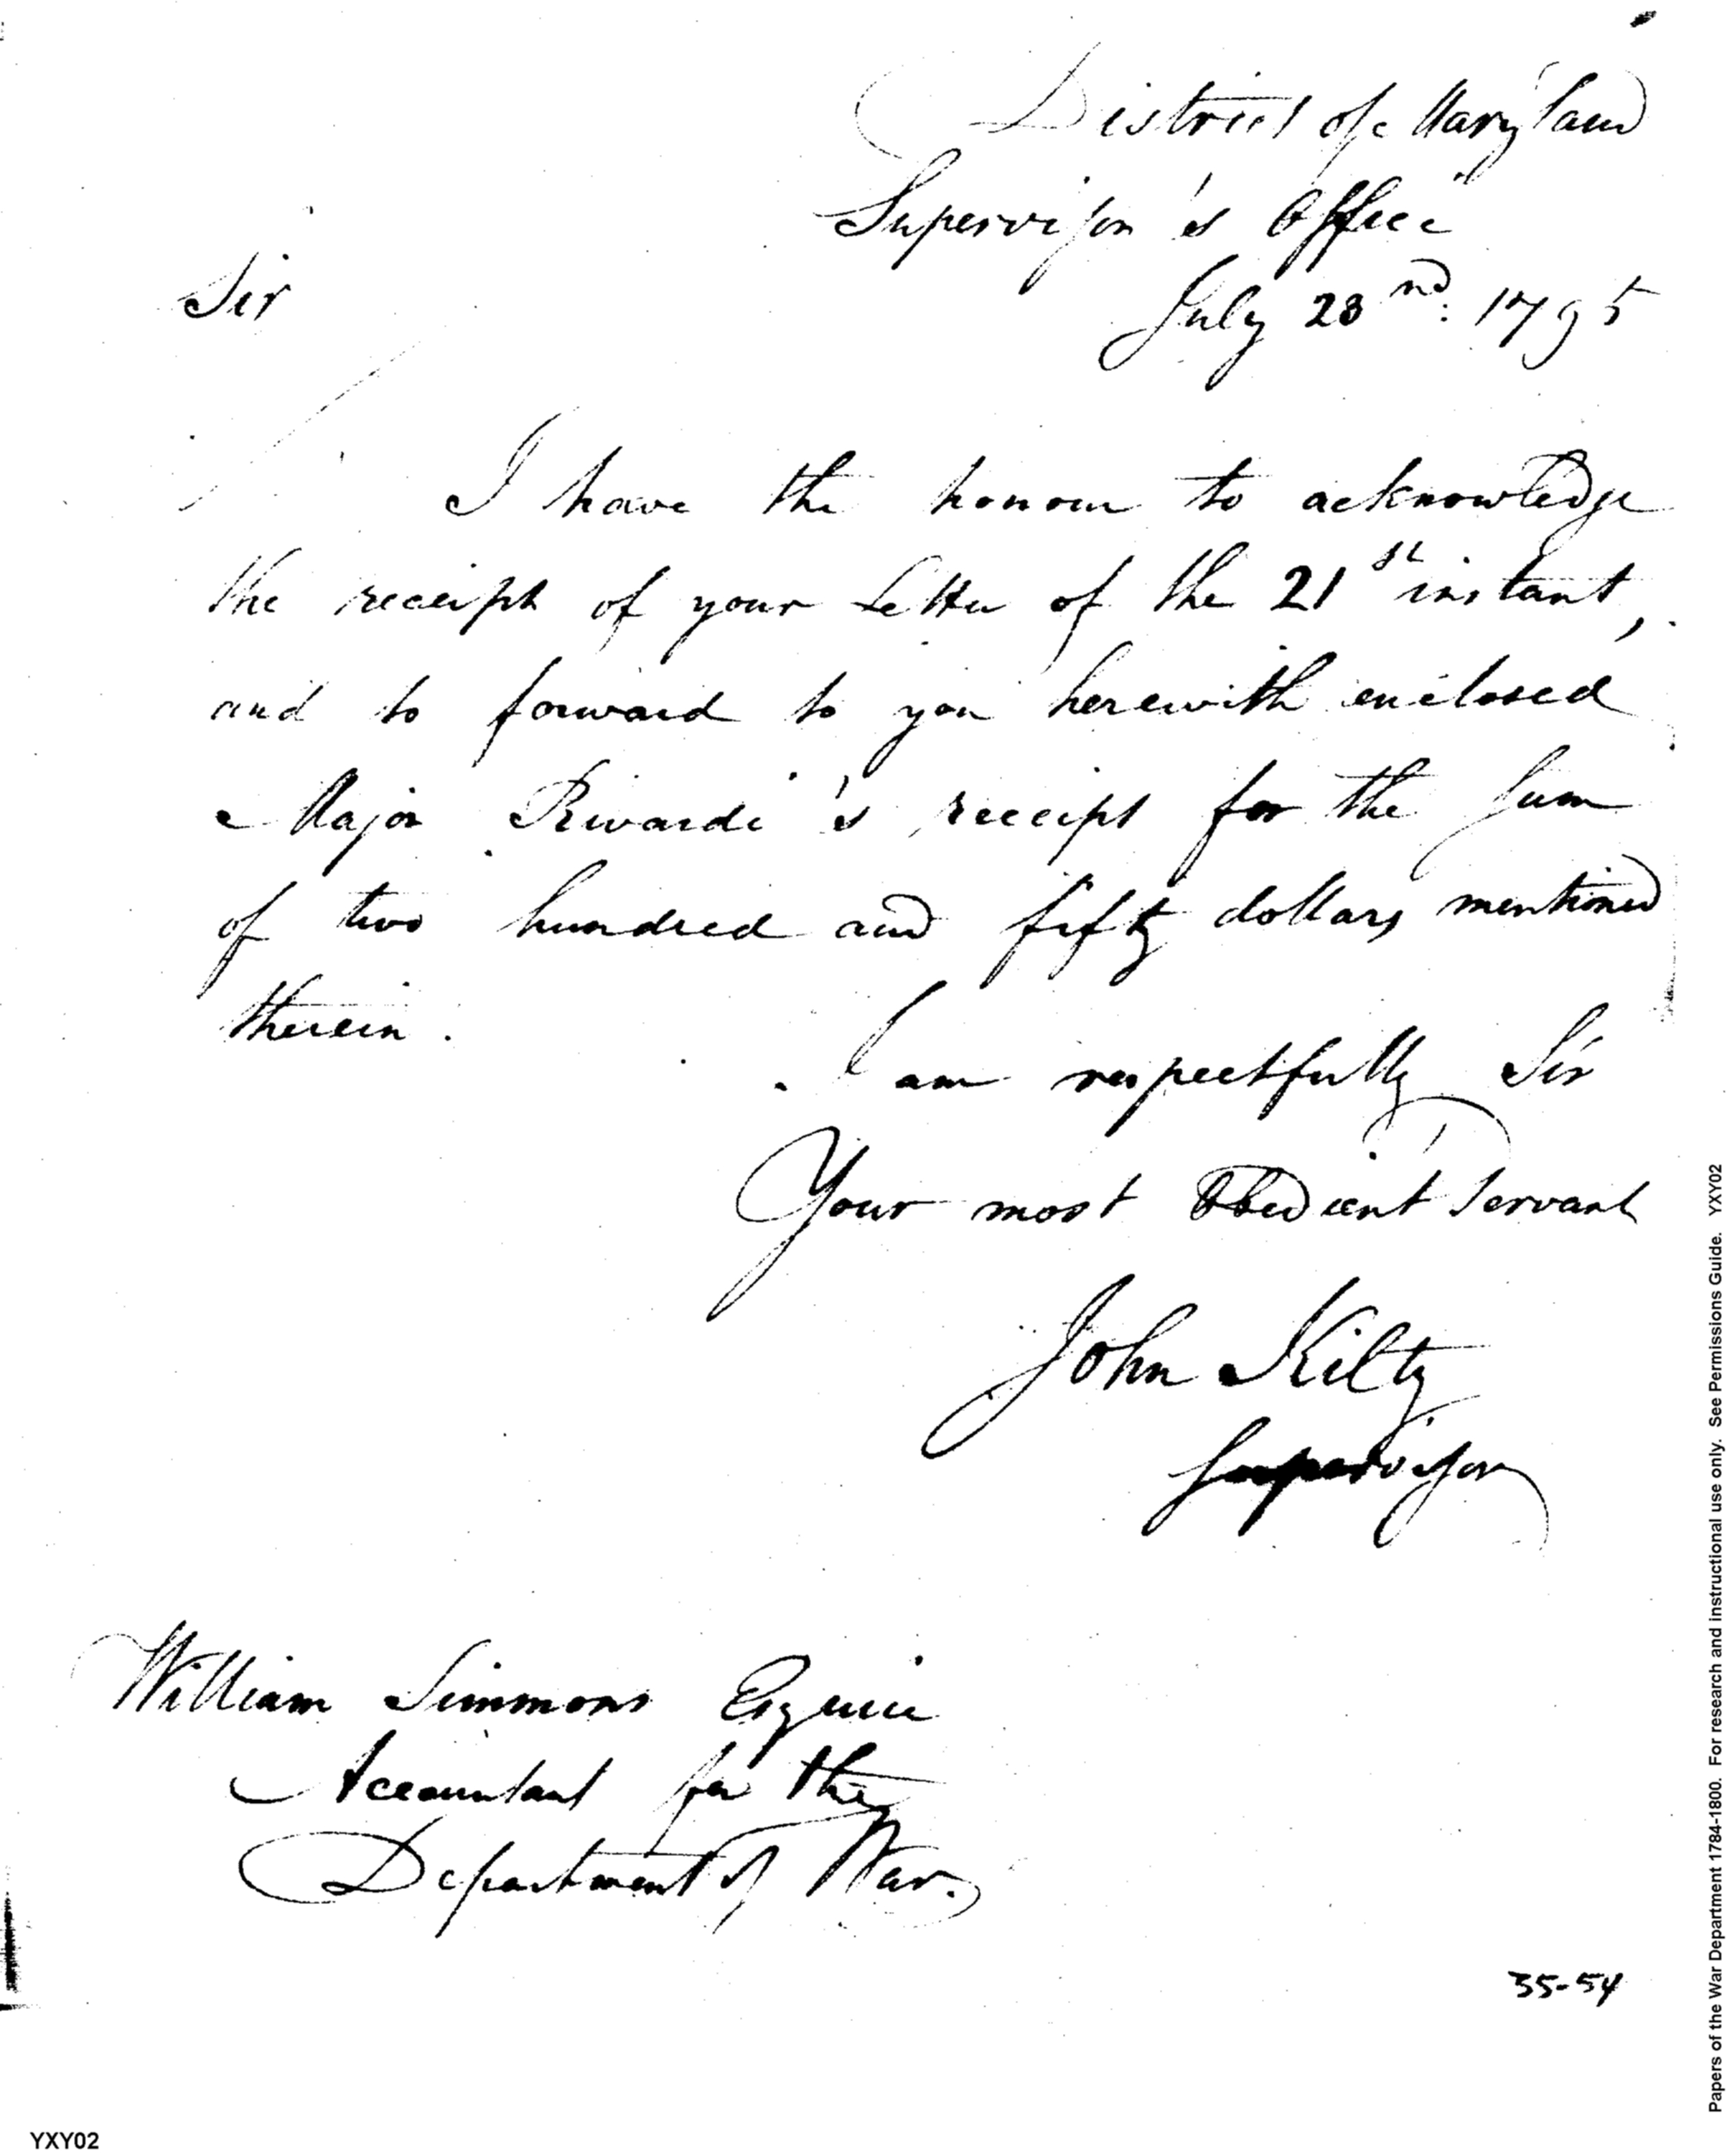 District of Maryland
Supervisor's Office
Sir
July 23nd. 1795
I have the honour to acknowledge
the receipt of your Letter of the 21st instant,
and to forward to you herewith enclosed
Major Rivardi's receipt for the Sum
of two hundred and fifty dollars mentioned
therein.
I am respectfully Sir
Your most Obedient Servant
John Kilty
Supervisor
William Simmons Esquire
Accountant for the
Department of War.
35-54
YXY02
Papers of the War Department 1784-1800. For research and instructional use only. See Permissions Guide. YXY02